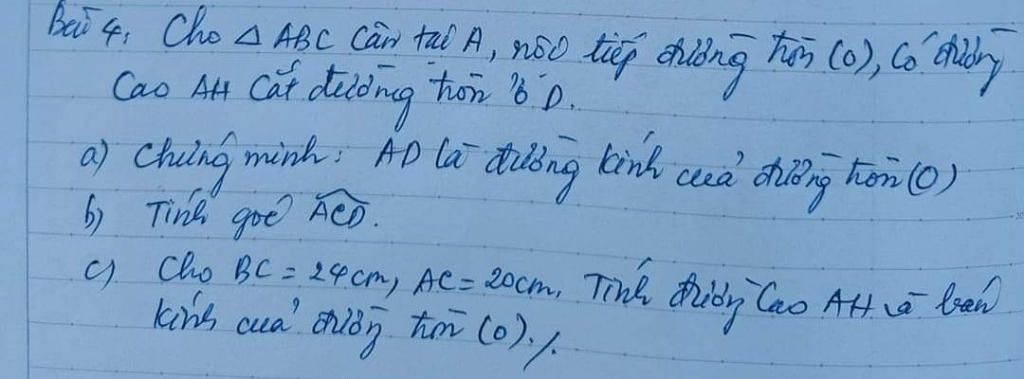 Bài 4: Cho △ ABC cân tại A, nội tiếp đường tròn (O), Có đường
Cao AH Cắt đường tròn ở D.
a) Chứng minh: AD là đường kính của đường tròn (O)
b) Tính góc ACD.
c) Cho BC = 24cm, AC = 20cm. Tính đường Cao AH và bán
kính của đường tròn (O)./.